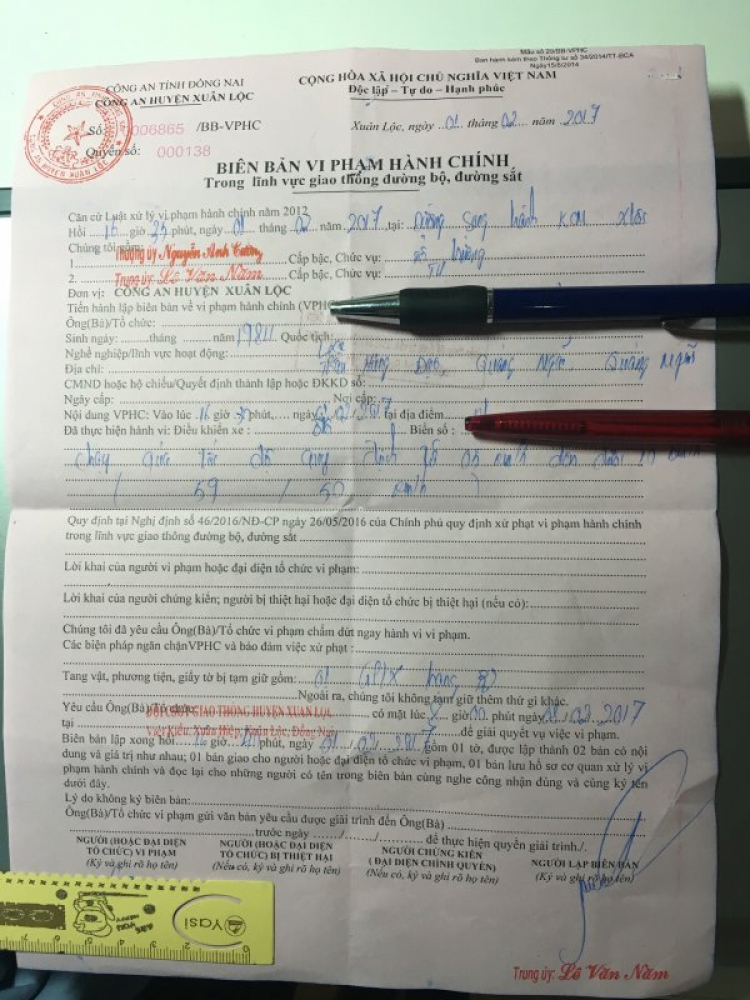 Mẫu số 20/BB-VPHC
Ban hành kèm theo Thông tư số 34/2014/TT-BCA
Ngày15/8/2014
CÔNG AN TỈNH ĐỒNG NAI
CÔNG AN HUYỆN XUÂN LỘC
CỘNG HÒA XÃ HỘI CHỦ NGHĨA VIỆT NAM
Độc lập – Tự do – Hạnh phúc
Số: 0006865 /BB-VPHC
Quyển số: 000138
Xuân Lộc, ngày 01 tháng 02 năm 2017
BIÊN BẢN VI PHẠM HÀNH CHÍNH
Trong lĩnh vực giao thông đường bộ, đường sắt
Căn cứ Luật xử lý vi phạm hành chính năm 2012
Hồi 16 giờ 35 phút, ngày 01 tháng 02 năm 2017 tại:
Chúng tôi gồm:
1. Thượng úy Nguyễn Anh Cường Cấp bậc, Chức vụ:
2. Trung úy: Lê Văn Năm Cấp bậc, Chức vụ:
Đơn vị: CÔNG AN HUYỆN XUÂN LỘC
Tiến hành lập biên bản về vi phạm hành chính (VPHC
Ông(Bà)/Tổ chức:
Sinh ngày: tháng năm Quốc tịch:
Nghề nghiệp/lĩnh vực hoạt động:
Địa chỉ: Quảng Ngãi, Quảng Ngãi
CMND hoặc hộ chiếu/Quyết định thành lập hoặc ĐKKD số:
Ngày cấp: Nơi cấp:
Nội dung VPHC: Vào lúc 16 giờ 30 phút, ngày 01/02/2017 tại địa điểm
Đã thực hiện hành vi: Điều khiển xe : Biển số :
chạy quá tốc độ quy định từ 05 km/h đến dưới 10 km/h
( 59 / 50 km/h )
Quy định tại Nghị định số 46/2016/NĐ-CP ngày 26/05/2016 của Chính phủ quy định xử phạt vi phạm hành chính
trong lĩnh vực giao thông đường bộ, đường sắt
Lời khai của người vi phạm hoặc đại diện tổ chức vi phạm:
Lời khai của người chứng kiến; người bị thiệt hại hoặc đại diện tổ chức bị thiệt hại (nếu có):
Chúng tôi đã yêu cầu Ông(Bà)/Tổ chức vi phạm chấm dứt ngay hành vi vi phạm.
Các biện pháp ngăn chặnVPHC và bảo đảm việc xử phạt :
Tang vật, phương tiện, giấy tờ bị tạm giữ gồm: 01 GPLX hạng
Ngoài ra, chúng tôi không tạm giữ thêm thứ gì khác.
Yêu cầu Ông(Bà)/Tổ chức: có mặt lúc 8 giờ 00 phút ngày 08/02/2017
ĐỘI CSGT GIAO THÔNG HUYỆN XUÂN LỘC
tại Xuân Hiệp, Xuân Lộc, Đồng Nai để giải quyết vụ việc vi phạm.
Biên bản lập xong hồi 16 giờ phút, ngày 01/02/2017 gồm 01 tờ, được lập thành 02 bản có nội
dung và giá trị như nhau; 01 bản giao cho người hoặc đại diện tổ chức vi phạm, 01 bản lưu hồ sơ cơ quan xử lý vi
phạm hành chính và đọc lại cho những người có tên trong biên bản cùng nghe công nhận đúng và cùng ký tên
dưới đây.
Lý do không ký biên bản:
Ông(Bà)/Tổ chức vi phạm gửi văn bản yêu cầu được giải trình đến Ông(Bà)
trước ngày ....../....../...... để thực hiện quyền giải trình./.
NGƯỜI (HOẶC ĐẠI DIỆN TỔ CHỨC) VI PHẠM
(Ký và ghi rõ họ tên)
NGƯỜI (HOẶC ĐẠI DIỆN TỔ CHỨC) BỊ THIỆT HẠI
(Nếu có, ký và ghi rõ họ tên)
NGƯỜI CHỨNG KIẾN
( ĐẠI DIỆN CHÍNH QUYỀN)
(Nếu có, ký và ghi rõ họ tên)
NGƯỜI LẬP BIÊN BẢN
(Ký và ghi rõ họ tên)
Yasi
Trung úy: Lê Văn Năm